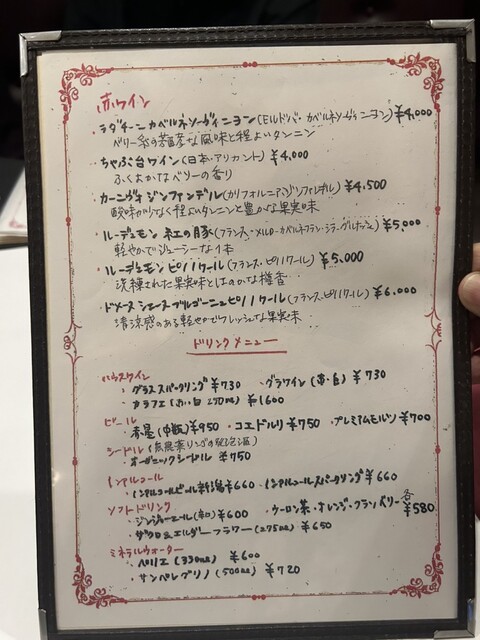 赤ワイン
・ラダチーニ カベルネソーヴィニヨン(モルドバ・カベルネソーヴィニヨン) ¥4,000
ベリー系の芳醇な風味と程よいタンニン
・ちゃぶ台ワイン(日本・アリカント) ¥4,000
ふくよかなベリーの香り
・カーニヴォ ジンファンデル(カリフォルニア・ジンファンデル) ¥4,500
酸味が少なく程よいタンニンと豊かな果実味
・ルーデュモン ネエの豚(フランス・メルロ・カベルネフラン・シラー・グルナッシュ) ¥5,000
軽やかでジューシーな1本
・ルーデュモン ピノノワール(フランス・ピノノワール) ¥5,000
洗練された果実味とほのかな樽香
・ドメーヌ シェーヌ ブルゴーニュピノノワール(フランス・ピノノワール) ¥6,000
清涼感のある軽やかでフレッシュな果実味
ドリンクメニュー
ハウスワイン
・グラススパークリング ¥730 ・グラスワイン(赤・白) ¥730
・カラフェ(赤い白 250ml) ¥1600
ビール
・赤星(中瓶) ¥950 ・コエドルリ ¥750 ・プレミアムモルツ ¥700
シードル(無農薬リンゴの発泡酒)
・オーガニックシードル ¥750
ノンアルコール
・ノンアルコールビール ¥660 ・ノンアルコールスパークリング ¥660
ソフトドリンク
・ジンジャーエール(辛口) ¥600 ・ウーロン茶・オレンジ・クランベリー各¥580
・ザクロ&エルダーフラワー(275ml) ¥650
ミネラルウォーター
・ペリエ(330ml) ¥600
・サンペレグリノ(500ml) ¥720